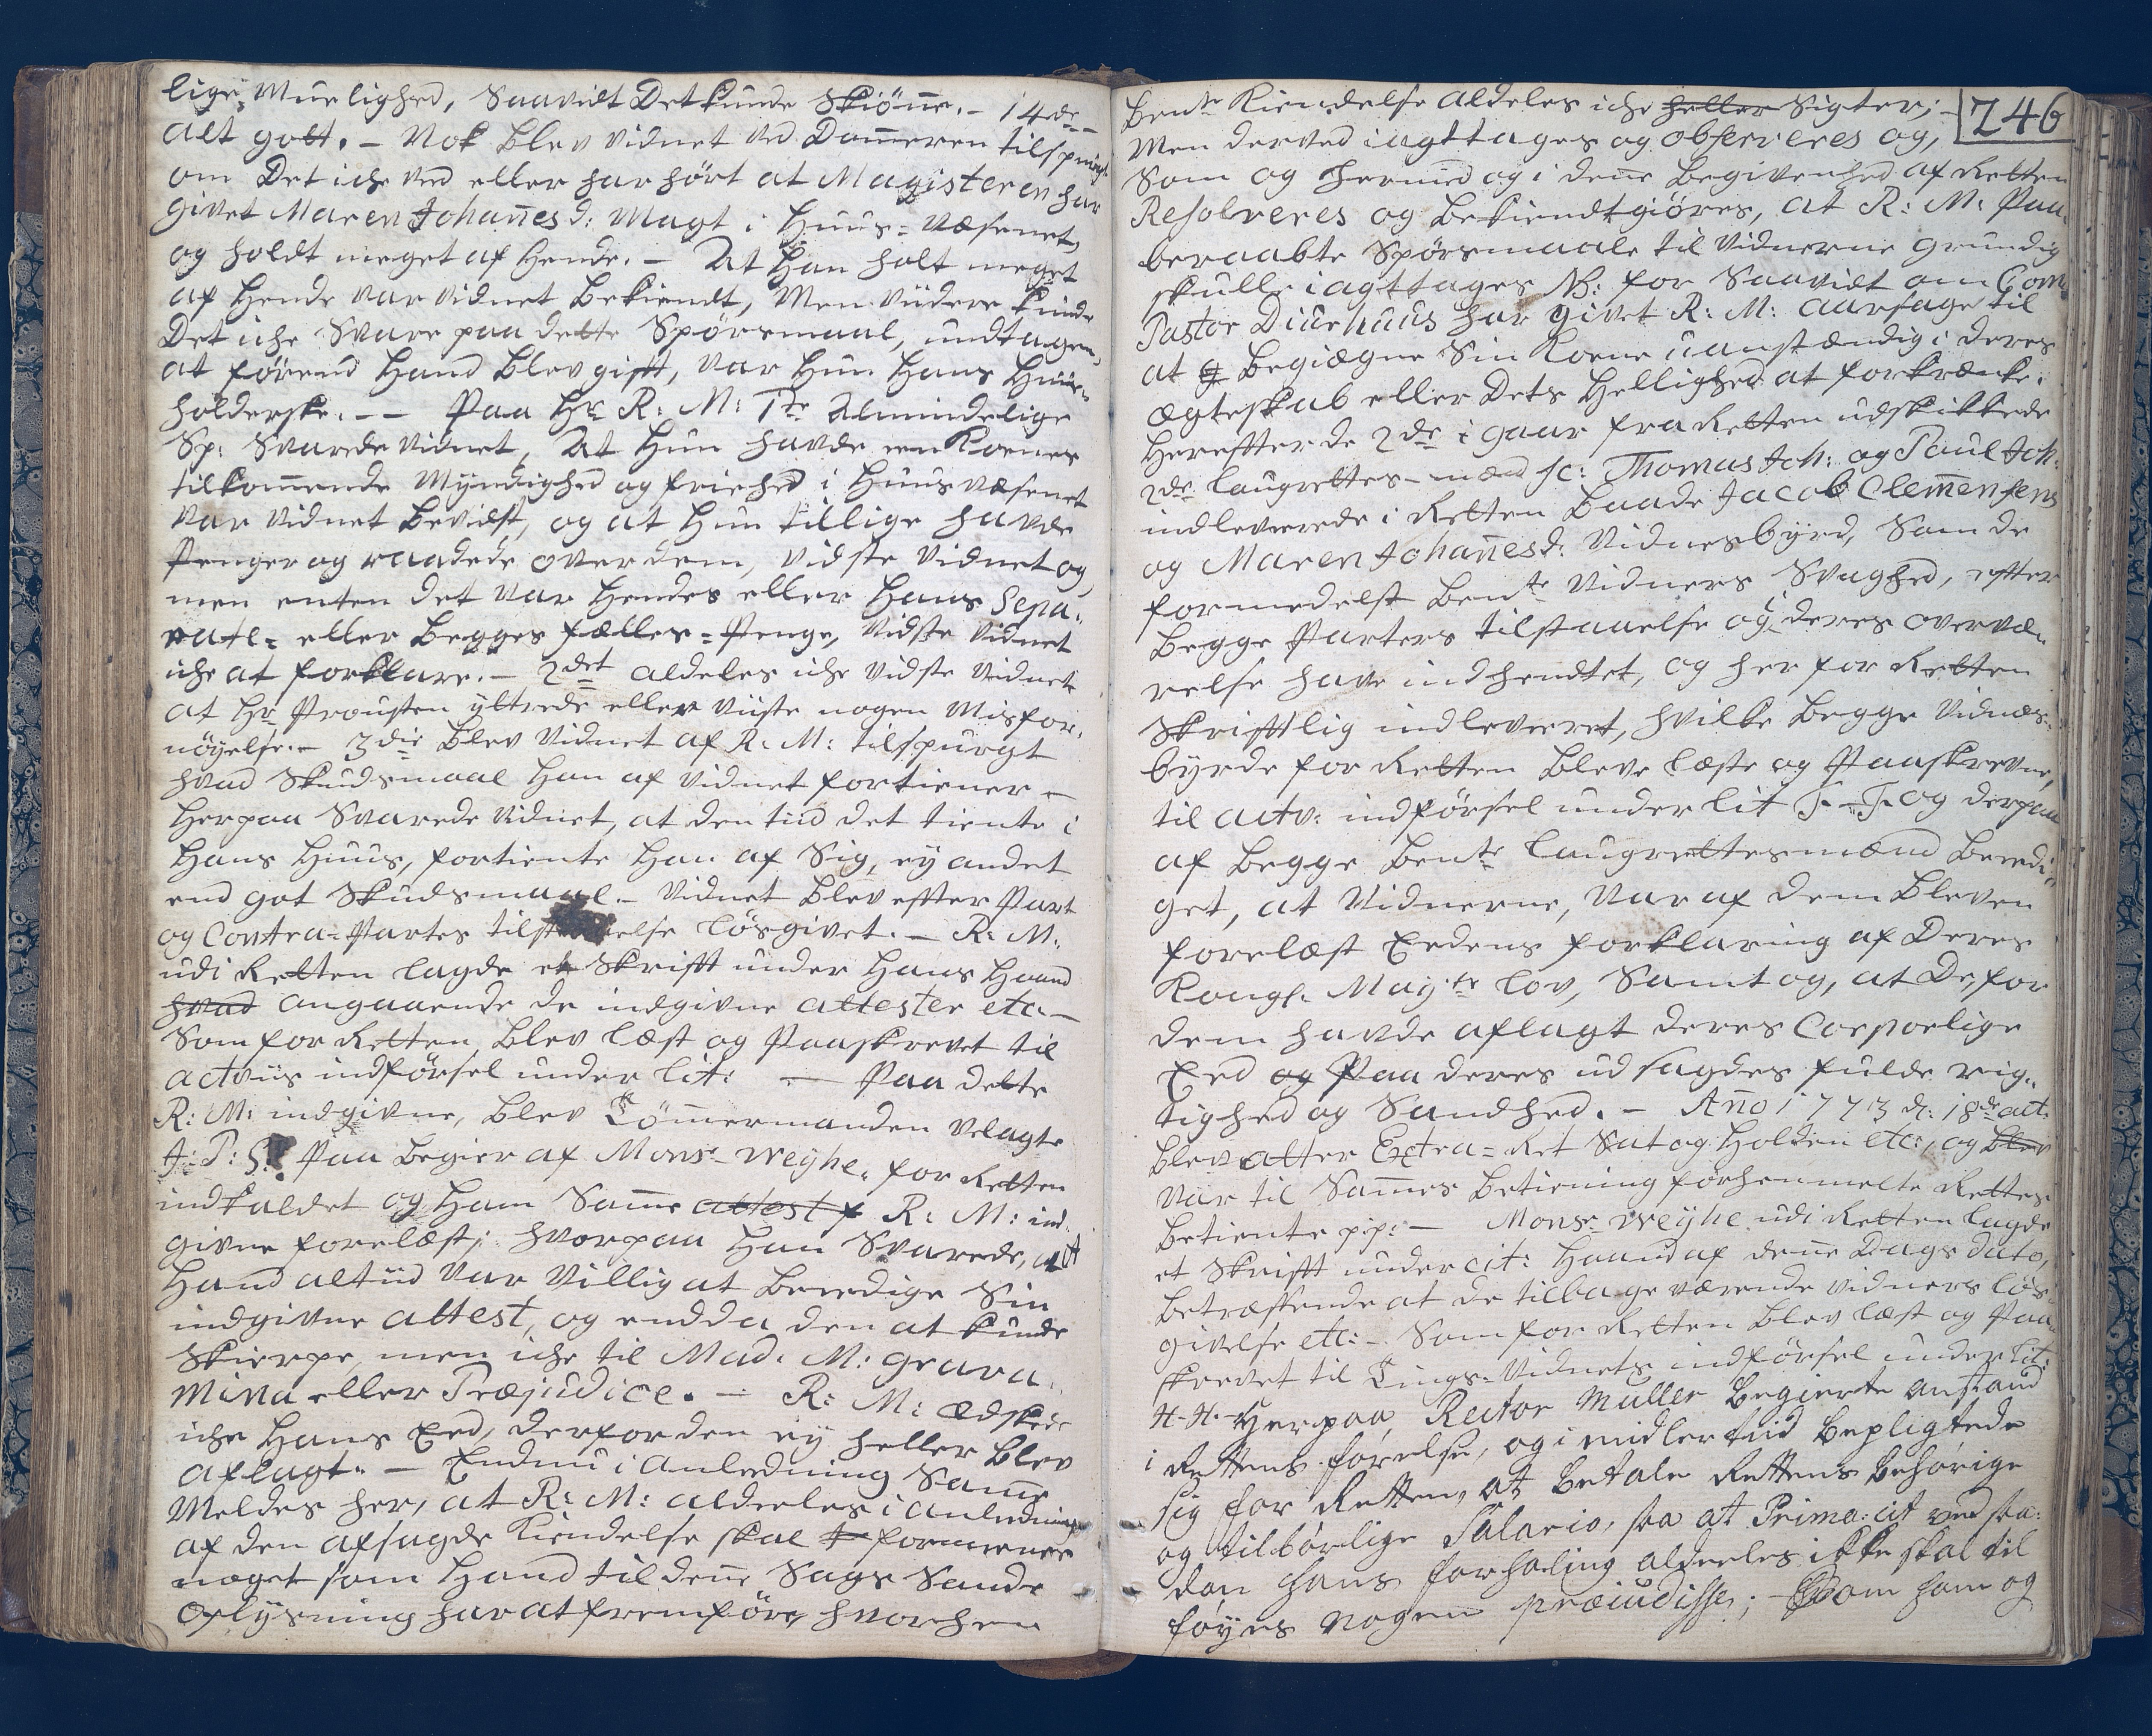 lige Muelighed, Saavidt Det kunde Skiönne. – 14de
alt gott. – Nok blev vidnet ved Domeren tilspurgt
om Det iche ved eller har hört at Magisteren har
givet Maren Johanesd: Magt i Huus-Væsenet,
og holdt meget af Hende. – At Han holt meget
af Hende var vidnet bekiendt, Men viidere kunde
Det iche Svare paa dette Spörsmaal, undtagen
at förend Hand blev gifft, var Hun Hans Huus-
holderske. – – Paa Hr R: M: 1te Almindelige
Sp: Svarede vidnet, At Hun havde een Kones
tilkomende Myndighed og friehed i Huusvæsenet
var vidnet bevidst, og at Hun tillige havde
Penger og raadede over dem, vidste vidnet og
men enten det var Hendes eller Hans Sepa-
rate- eller begges fælles-Penge, vidste vidnet
iche at forklare. – 2det aldeles iche vidste vidnet
at Hr Prousten yttrede eller viiste nogen Misfor-
nöyelse. – 3die blev vidnet af R: M: tilspurgt
hvad Skudsmaal Han af vidnet fortiener –
Herpaa Svarede vidnet, at den tiid det tiente i
Hans Huus, fortiente Han af Sig, ey andet
end got Skudsmaal. – vidnet blev effter Part
og Contra-Partes löSgivet. – R: M:
udi Retten lagde et Skrifft under Hans Haand
hvad angaaende de indgivne attester etc. –
Som for Retten blev læst og Paaskrevet til
actviis indförsel under lit: – Paa dette
R: M: indgivne, blev Tömmermanden velagte
J: P: S: Paa begier af Monsr Weyhe, for Retten
indkaldet og Ham Same attest f R: M: ind-
givne forelæst; hvorpaa Han Svarede, at
Hand altiid var villig at beeedige Sin
indgivne attest, og endda den at kunde
Skierpe, men iche til Mad. M: grava-
mina eller Præjudice. – R: M: ædskede
iche Hans Eed, derfor den ey heller blev
aflagt. – Endnu i anledning Same
Meldes her, at R: M: aldeeles i anledning
af den afsagde Kiendelse skal formenes
noget som Hand til dene Sags Sande
Oplysning har at fremföre, hvorhen
246
bente Kiendelse aldeles iche heller Sigter;
Men derved iagttages og observeres og,
Som og hermed og i dene begivenhed af Retten
Resolveres og bekiendtgiöres, at R: M: Paa-
beraabte Spörsmaale til vidnerne grundig
skulle iagttages NB: for Saavidt om
Pastor Diurhuus har givet R: M: aarsage til
at begiægne Sin Kone uanstændig i deres
ægteskab eller Dets Hellighed at forkrænke.
Hereffter de 2de i gaar fra Retten udskikkede
2de laugrettes-mænd sc: Thomas Joh: og Paul Joh:
indleverede i Retten baade Jacob Clemensens
og Maren Johanesd: vidnesbyrd, Som de
formedelst bente vidners Svaghed, effter
begge Parters tilstaaelse og i deres overvæ-
relse have indhendtet, og her for Retten
Skrifftlig indleveret, hvilke begge vidnes-
byrde for Retten bleve læste og Paaskrevne,
til actv: indförsel under lit F - F og derpaa
af begge bente laugrettesmænd beeedi-
get, at vidnerne, var af dem bleven
forelæst Eedens forklaring af Deres
Kongl. Mayts lov, Samt og, at De, for
dem havde aflagt deres Corporlige
Eed og Paa deres udsagdes fulde rig-
tighed og Sandhed. – Ano 1773 d: 18de
blev atter Extra-Ret Sat og Holden etc:, og blev
var til Sames betiening forhenmelte Rettes
betiente pp: – Monsr Weyhe udi Retten lagde
et Skrifft under cit: Haand af dene Dags dato,
betræffende at de tilbageværende vidners lös-
givelse etc: – Som for Retten blev læst og Paa-
skrevet til Tings-vidnets indförsel under Lit:
H-H. – Herpaa, Rector Müller begierte anstand
i Rettens förelse, og i midlertiid bepligtede
sig for Retten, at betale Rettens behörige
og tilbörlige Salario, saa at Prima: cit ved saa-
dan hans forhaling aldeeles ikke skal til
föyes nogen præiudisse; – Som ham og